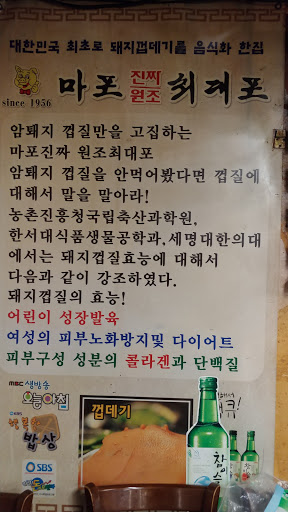 대한민국 최초로 돼지껍데기를 음식화 한집
since 1956
마포 진짜 원조 최대포
암퇘지 껍질만을 고집하는
마포진짜 원조최대포
암퇘지 껍질을 안먹어봤다면 껍질에
대해서 말을 말아라!
농촌진흥청국립축산과학원,
한서대식품생물공학과,세명대한의대
에서는 돼지껍질효능에 대해서
다음과 같이 강조하였다.
돼지껍질의 효능!
어린이 성장발육
여성의 피부노화방지및 다이어트
피부구성 성분의 콜라겐과 단백질
MBC 생방송
오늘아침
밥상
SBS
껍데기
참이슬